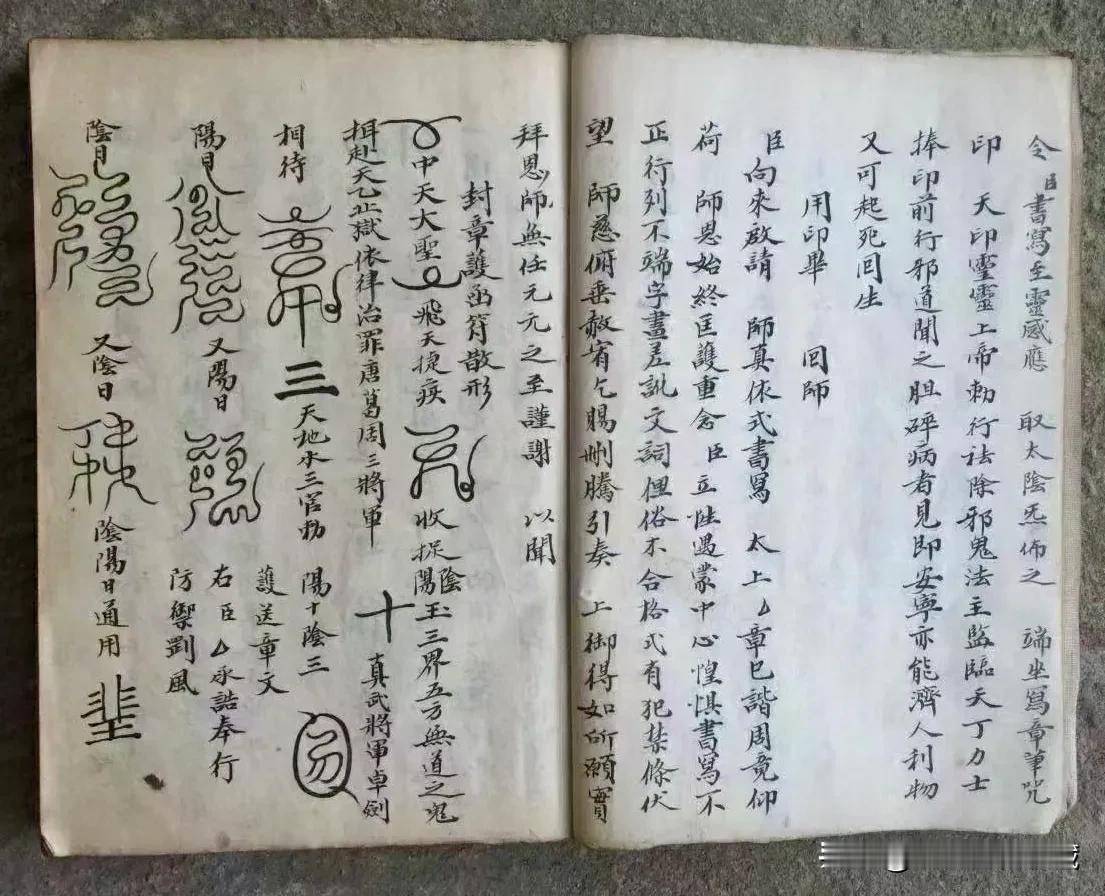 令臣書寫至靈感應　取太陰炁佈之　端坐寫章筆咒
印　天印靈靈上帝勅行祛除邪鬼法主監臨天丁力士
捧印前行邪道聞之胆碎病者見即安寧亦能濟人利物
又可起死回生
用印畢　回師
臣向來啟請　師真依式書寫　太上厶章已諧周竟仰
荷　師恩始終匡護重念臣立性愚蒙中心惶惧書寫不
正行列不端字畫差訛文詞俚俗不合格式有犯禁條伏
望　師慈俯垂赦宥乞賜刪騰引奏　上御得如所願實
拜恩師無任元元之至謹謝　以聞
封章護函符散形
中天大聖　飛天捷疾　收捉陰陽　三界五方無道之鬼
揖赴天乙北獄依律治罪唐葛周三將軍　十　真武將軍卓劍
相待　三　天地水三官勅　陽十陰三
護送章文
陽日　又陽日　右臣厶承誥奉行
防禦罰風
陰日　又陰日　陰陽日通用